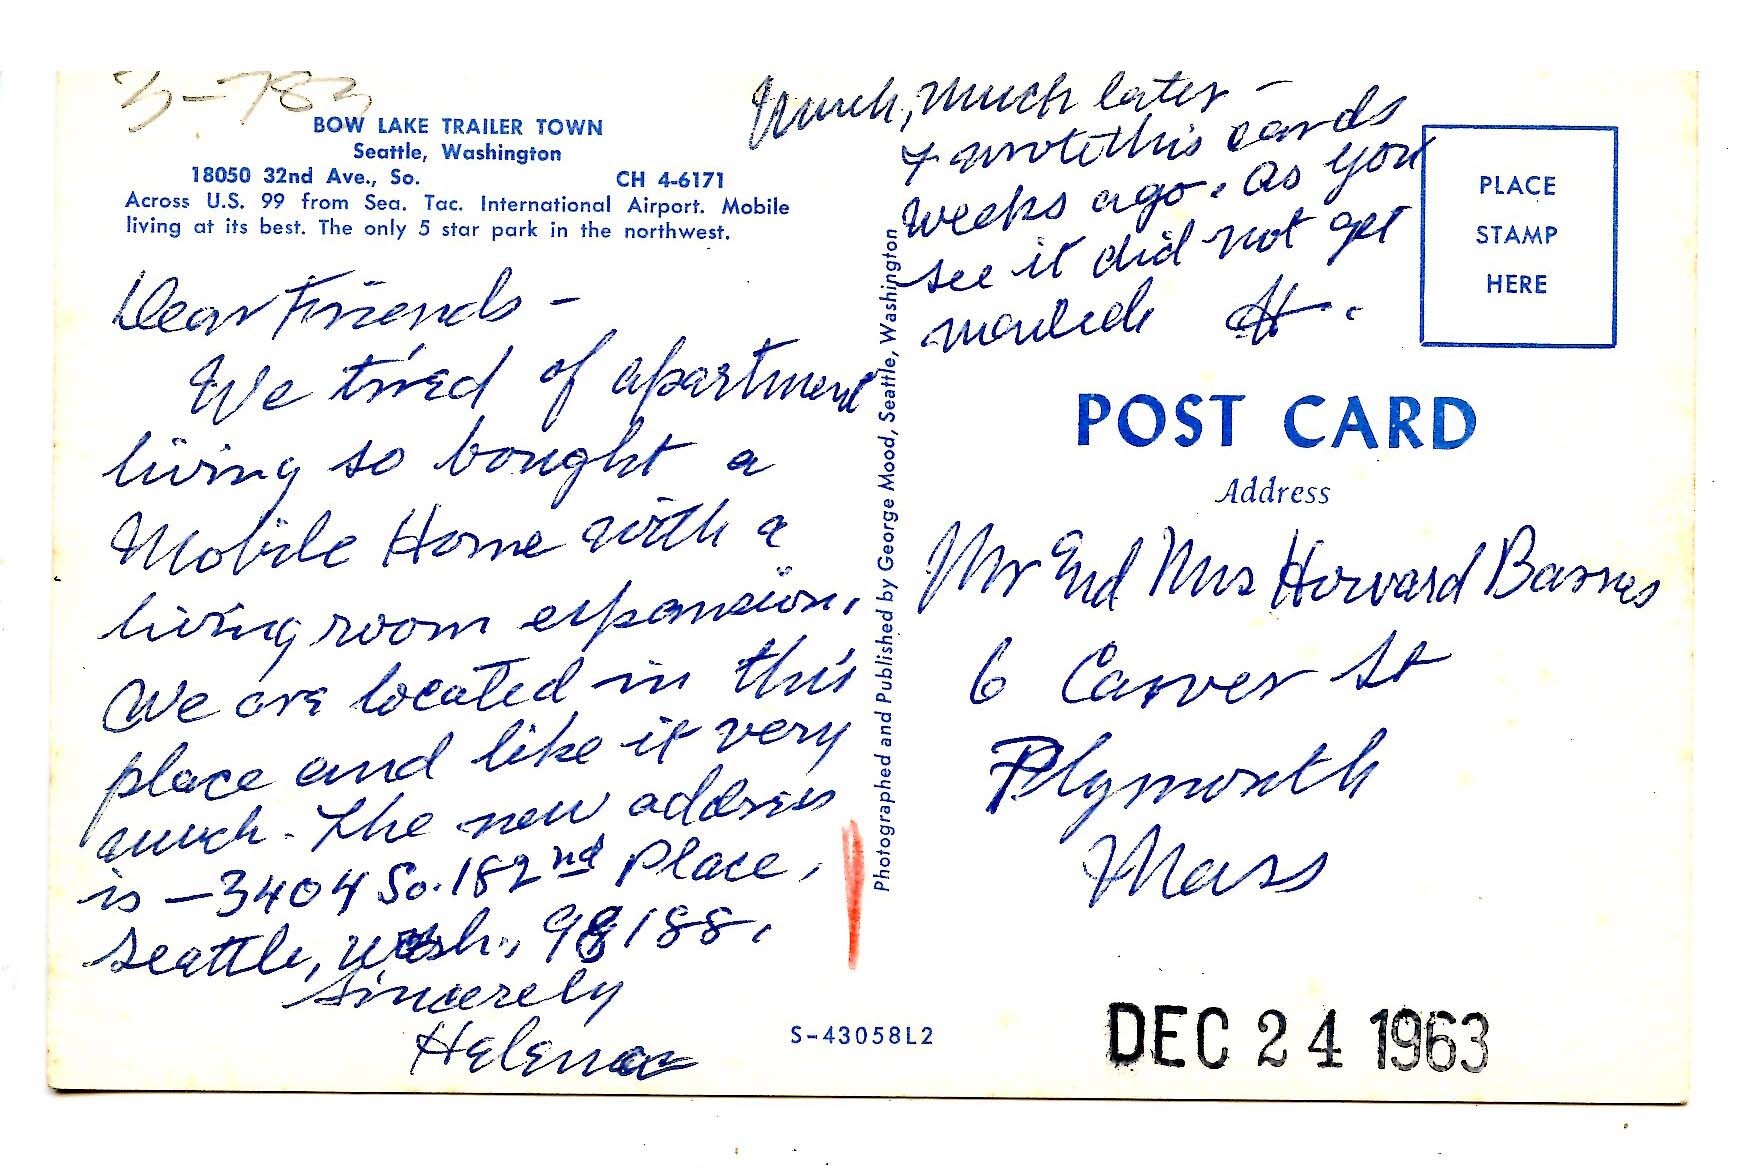 3-783
BOW LAKE TRAILER TOWN
Seattle, Washington
18050 32nd Ave., So. CH 4-6171
Across U.S. 99 from Sea. Tac. International Airport. Mobile
living at its best. The only 5 star park in the northwest.
Dear Friends -
We tired of apartment
living so bought a
Mobile Home with a
living room expansion.
We are located in this
place and like it very
much. The new address
is - 3404 So. 182nd Place,
Seattle, Wash., 98188.
Sincerely
Helena
Photographed and Published by George Mood, Seattle, Washington
S-43058L2
Much, much later -
I wrote this cards
weeks ago. As you
see it did not get
mailed H.
PLACE
STAMP
HERE
POST CARD
Address
Mr End Mrs Howard Barnes
6 Carver St
Plymouth
Mass
DEC 24 1963